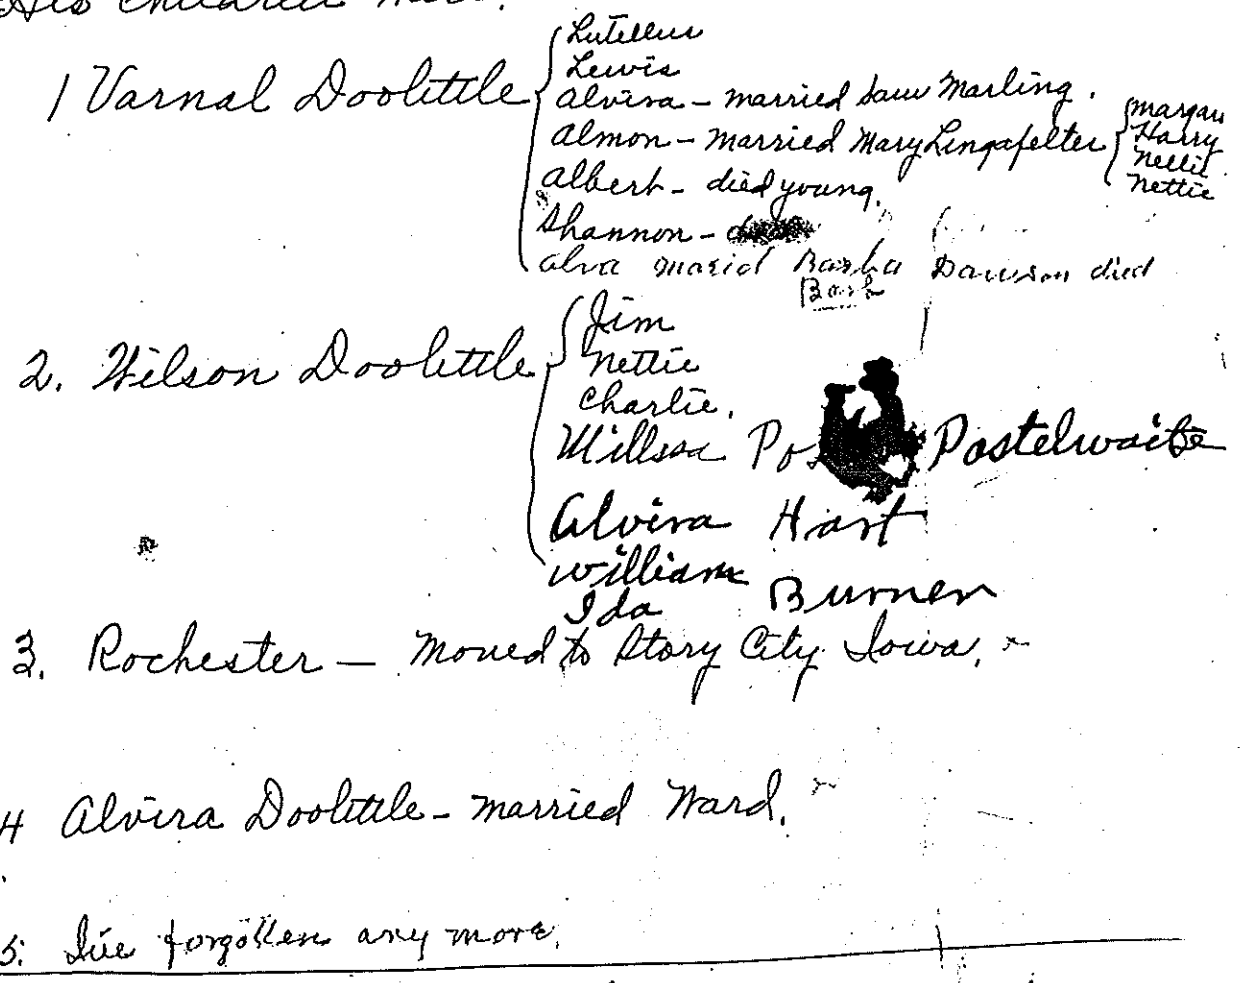 His children were.
1 Varnal Doolittle
Lutellus
Lewis
Alvira - married Sam Marling.
Almon - married Mary Lingafelter
Harry
Nellie
Nettie
Albert - died young.
Shannon -
Alva maried Barba Dawson died
Barb
2. Wilson Doolittle
Jim
Nettie
Charlie.
Willssa Pos Postelwaite
Alvira Hart
William
Ida Burner
3. Rochester - Moved to Story City Iowa.
4 Alvira Doolittle - married Ward.
5. I've forgotten any more.